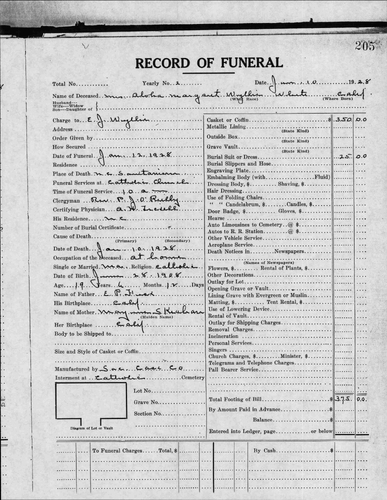 205
RECORD OF FUNERAL
Total No. Yearly No. 2 Date Jan. 10 1928
Name of Deceased Mrs Aloha Margaret Wyllie White Calif
(Why Race) (Where Born)
Husband—
Wife—Widow
Son—Daughter of
Charge to E. J. Wyllie
Address
Order Given by
How Secured
Date of Funeral Jan. 12 1928
Residence
Place of Death N.C. Sanitarium
Funeral Services at Catholic Church
Time of Service 10 am
Clergyman Rev. P. J. O'
Certifying Physician A. W.
His Residence N C
Number of Burial Certificate
Cause of Death
(Primary) (Secondary)
Date of Death Jan. 10 1928
Occupation of the Deceased at home
Single or Married Mar. Religion Catholic
Date of Birth 28 1908
Age 19 Years 6 Months 12 Days
Name of Father E. P.
His Birthplace Calif
Name of Mother Mary
(Maiden Name)
Her Birthplace Calif
Body to be Shipped to
Size and Style of Casket or Coffin
Manufactured by Sac. Cask. Co
Interment at Catholic Cemetery
Lot No.
Grave No.
Section No.
Diagram of Lot or Vault
Casket or Coffin $ 350 00
Metallic Lining
(State Kind)
Outside Box
(State Kind)
Grave Vault
(State Kind)
Burial Suit or Dress 25 00
Burial Slippers and Hose
Engraving Plate
Embalming Body (with Fluid)
Dressing Body, $ Shaving, $
Hair Dressing
Use of Folding Chairs
" " Candelabrum, $ Candles, $
Door Badge, $ Gloves, $
Hearse
Auto Limousines to Cemetery @ $
Autos to R. R. Station @ $
Other Vehicle Service
Aeroplane Service
Death Notices in Newspapers
(Names of Newspapers)
Flowers, $ Rental of Plants, $
Other Decorations
Outlay for Lot
Opening Grave or Vault
Lining Grave with Evergreen or Muslin
Matting, $ Tent Rental, $
Use of Lowering Device
Rental of Vault
Outlay for Shipping Charges
Removal Charges
Incineration
Personal Services
Singers
Church Charges, $ Minister, $
Telegrams and Telephone Charges
Pall Bearer Service
Total Footing of Bill $ 375 00
By Amount Paid in Advance
Balance
Entered into Ledger, page or below
To Funeral Charges Total, $
By Cash $